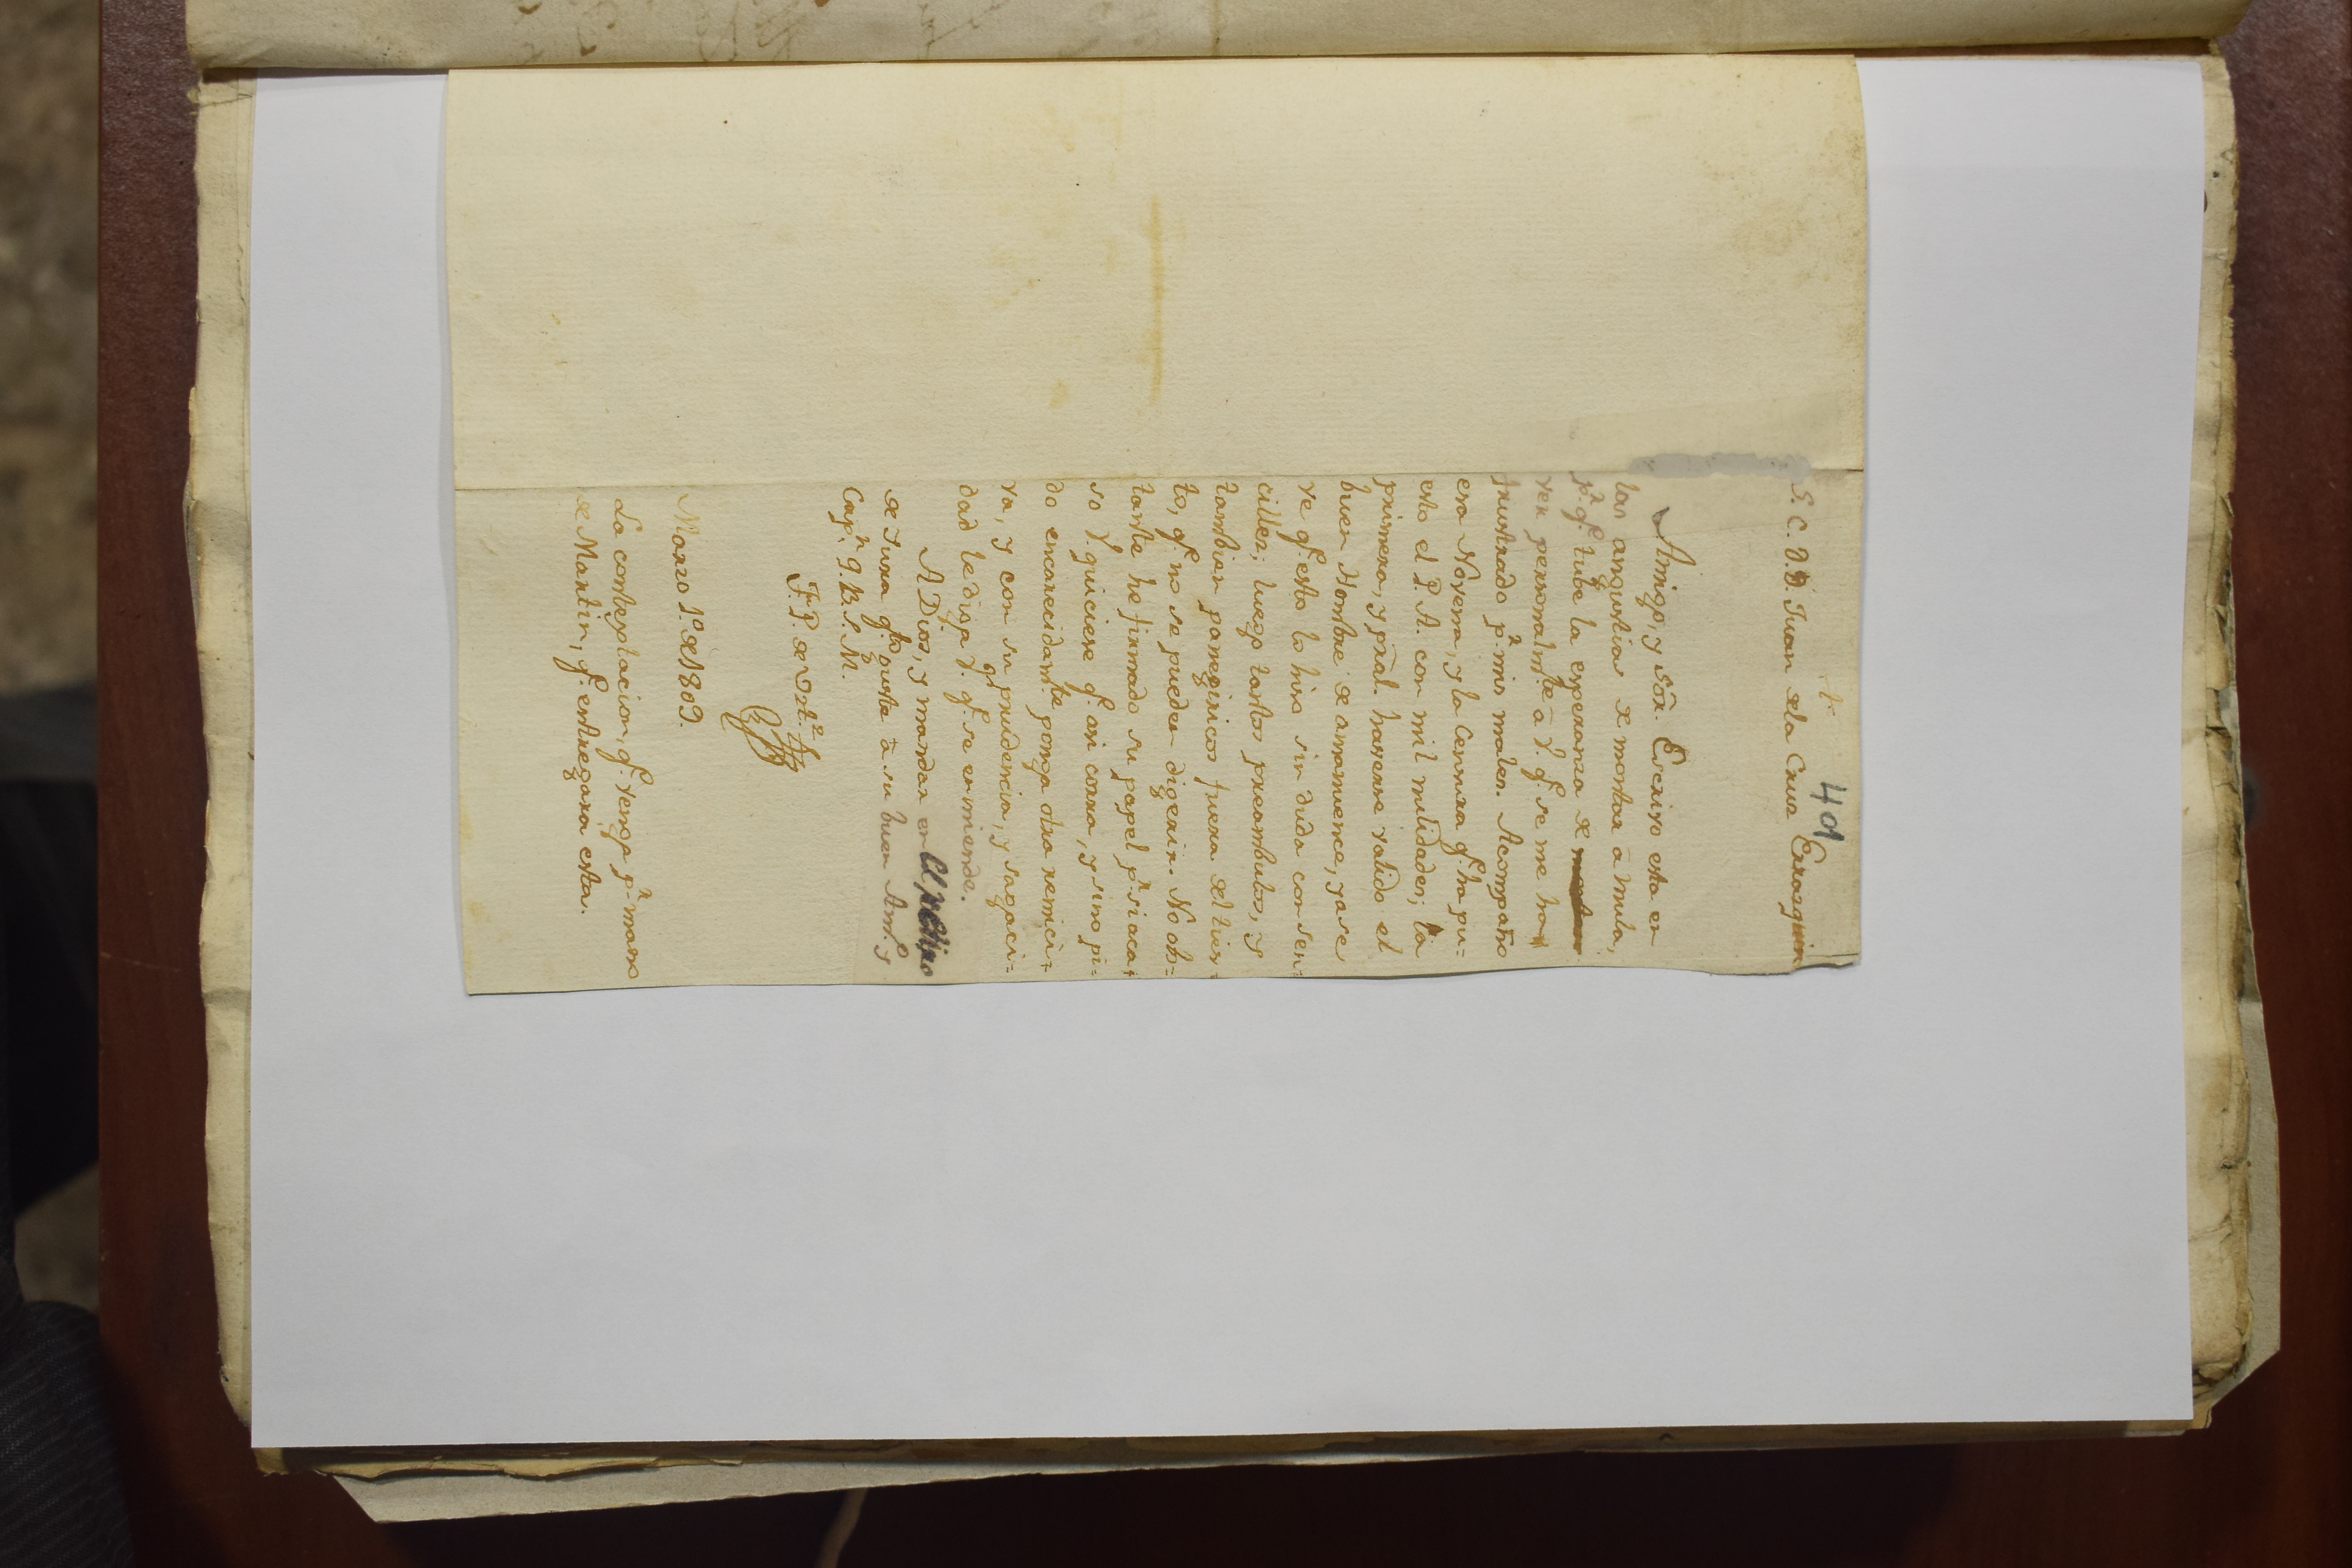 401
S. C. D. D. Juan de la Cruz Errasquin
Amigo, y Sõr. Escrivo esta en
las angustias de montar â mula,
pr. qe. tube la esperanza de
ver personalmte. â V. qe. se me ha
frustrado pr. mis males. Acompaño
esa Novena, y la Censura qe. ha pu=
esto el P. A. con mil nulidades; la
primera, y pral. haverse valido el
buen Hombre de amanuence, ya se
ve qe. esto lo hiso sin duda con sen=
cilles; luego tantos preambulos, y
tambien panegiricos fuera del tien
to, qe. no se pueden digerir. No obs=
tante he firmado su papel pr. si aca=
so V. quiciere qe. asi corra, y sino pi=
do encarecidamte. ponga otra remici=
va, y con su prudencia, y sagaci=
dad le diga V. qe. se enmiende.
A Dios, y mandar en el retiro
de Jura qe. gusta â su buen Amo. y
Capn. Q. B. S. M.
F. P. de Ort.z
Marzo 1o. de 1809.
La contextacion, qe. venga pr. mano
de Martin, qe. entregara esta.